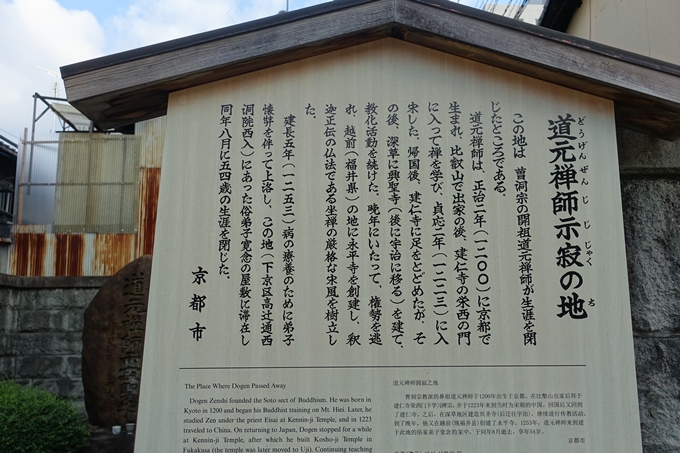 道元禅師示寂の地
どうげんぜんじじじゃくち
この地は 曹洞宗の開祖道元禅師が生涯を閉
じたところである。
道元禅師は、正治二年（一二〇〇）に京都で
生まれ、比叡山で出家の後、建仁寺の栄西の門
に入って禅を学び、貞応二年（一二二三）に入
宋した。帰国後、建仁寺に足をとどめたが、そ
の後、深草に興聖寺（後に宇治に移る）を建て、
教化活動を続けた。晩年にいたって、権勢を逃
れ、越前（福井県）の地に永平寺を創建し、釈
迦正伝の仏法である坐禅の厳格な宋風を樹立し
た。
建長五年（一二五三）病の療養のために弟子
懐弉を伴って上洛し、この地（下京区高辻通西
洞院西入）にあった俗弟子覚念の屋敷に滞在し
同年八月に五四歳の生涯を閉じた。
京都市
The Place Where Dogen Passed Away
Dogen Zenshi founded the Soto sect of Buddhism. He was born in
Kyoto in 1200 and began his Buddhist training on Mt. Hiei. Later, he
studied Zen under the priest Eisai at Kennin-ji Temple, and in 1223
traveled to China. On returning to Japan, Dogen stopped for a while
at Kennin-ji Temple, after which he built Kosho-ji Temple in
Fukakusa (the temple was later moved to Uji). Continuing teaching
道元禅師圆寂之地
京都市